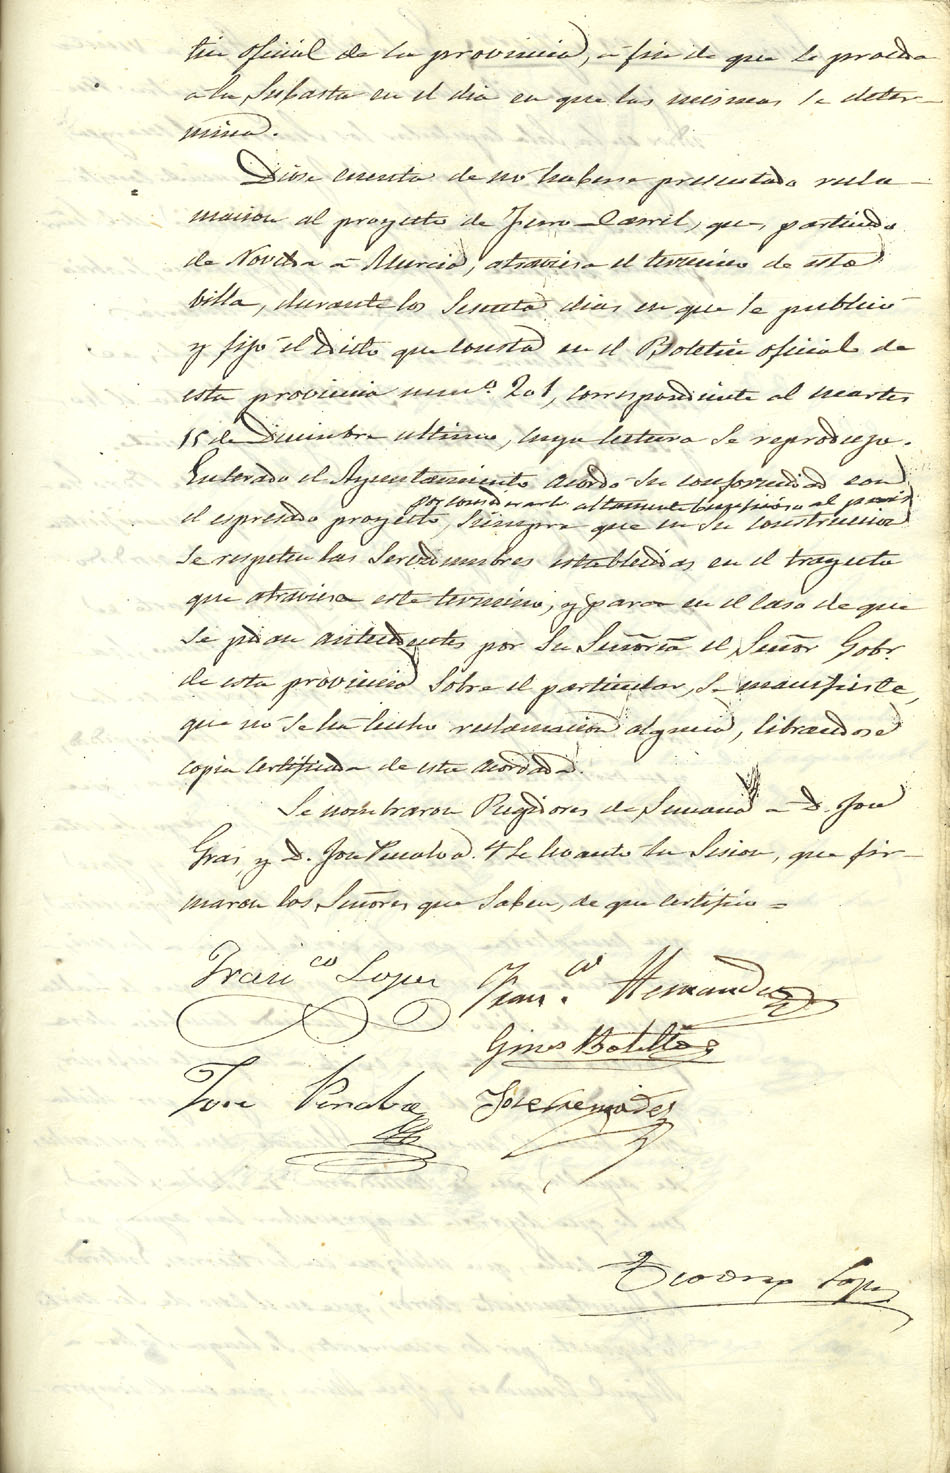 tin oficial de la provincia, a fin de que se proceda
a la Subasta en el dia en que las mismas se deter-
mina.
Diose cuenta de no haberse presentado recla-
macion al proyecto de Ferro-Carril, que, partiendo
de Novelda a Murcia, atraviesa el termino de esta
villa, durante los Sesenta dias en que se publicó
y fijó el Edicto que consta en el Boletin oficial de
esta provincia num.º 201, correspondiente al martes
15 de Diciembre ultimo, cuya lectura se reprodujo.
Enterado el Ayuntamiento acordó su conformidad con
por considerarlo altamente beneficioso al pais
el espresado proyecto, siempre que en su construccion
se respeten las Servidumbres establecidas en el trayecto
que atraviesa este termino, y para en el caso de que
se pidan antecedentes por Su Señoria el Señor Gobr.
de esta provincia sobre el particular, se manifieste,
que no se ha hecho reclamacion alguna, librandose
copia certificada de este acordado.
Se nombraron Regidores de Semana a D. Jose
Gras, y D. Jose Penalva. Y se levantó la Sesion, que fir-
maron los Señores que Saben, de que certifico =
Franco Lopez Franco Hernandez
Gines Botella
Jose Penalva Jose Cremades
Teodoro Lopez